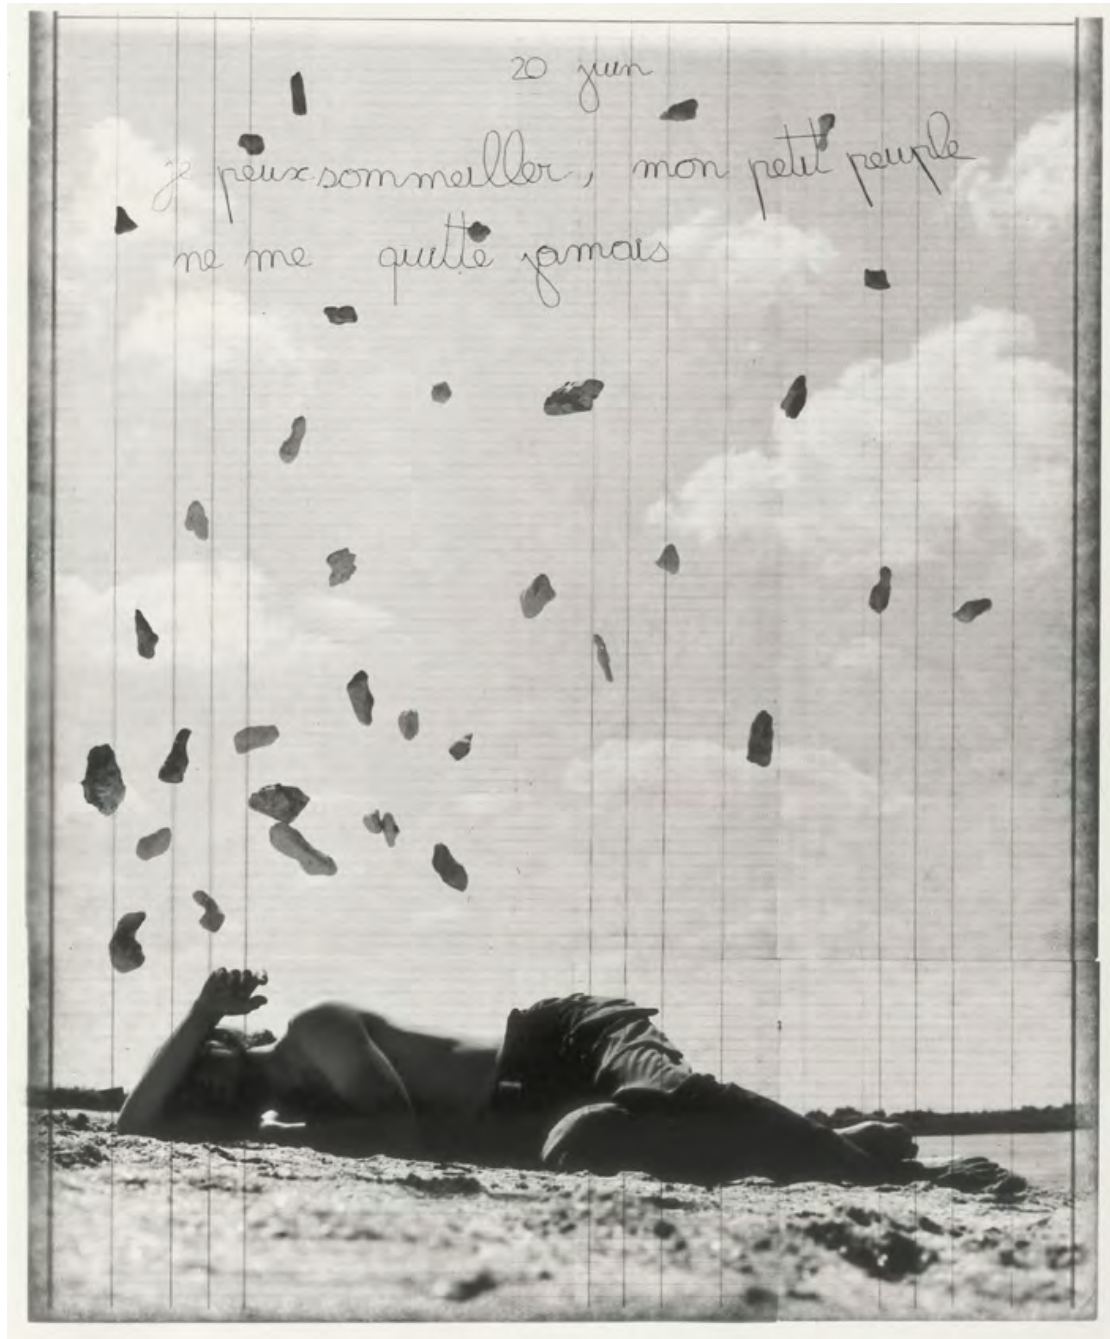 20 juin
je peux sommeiller, mon petit peuple
ne me quitte jamais